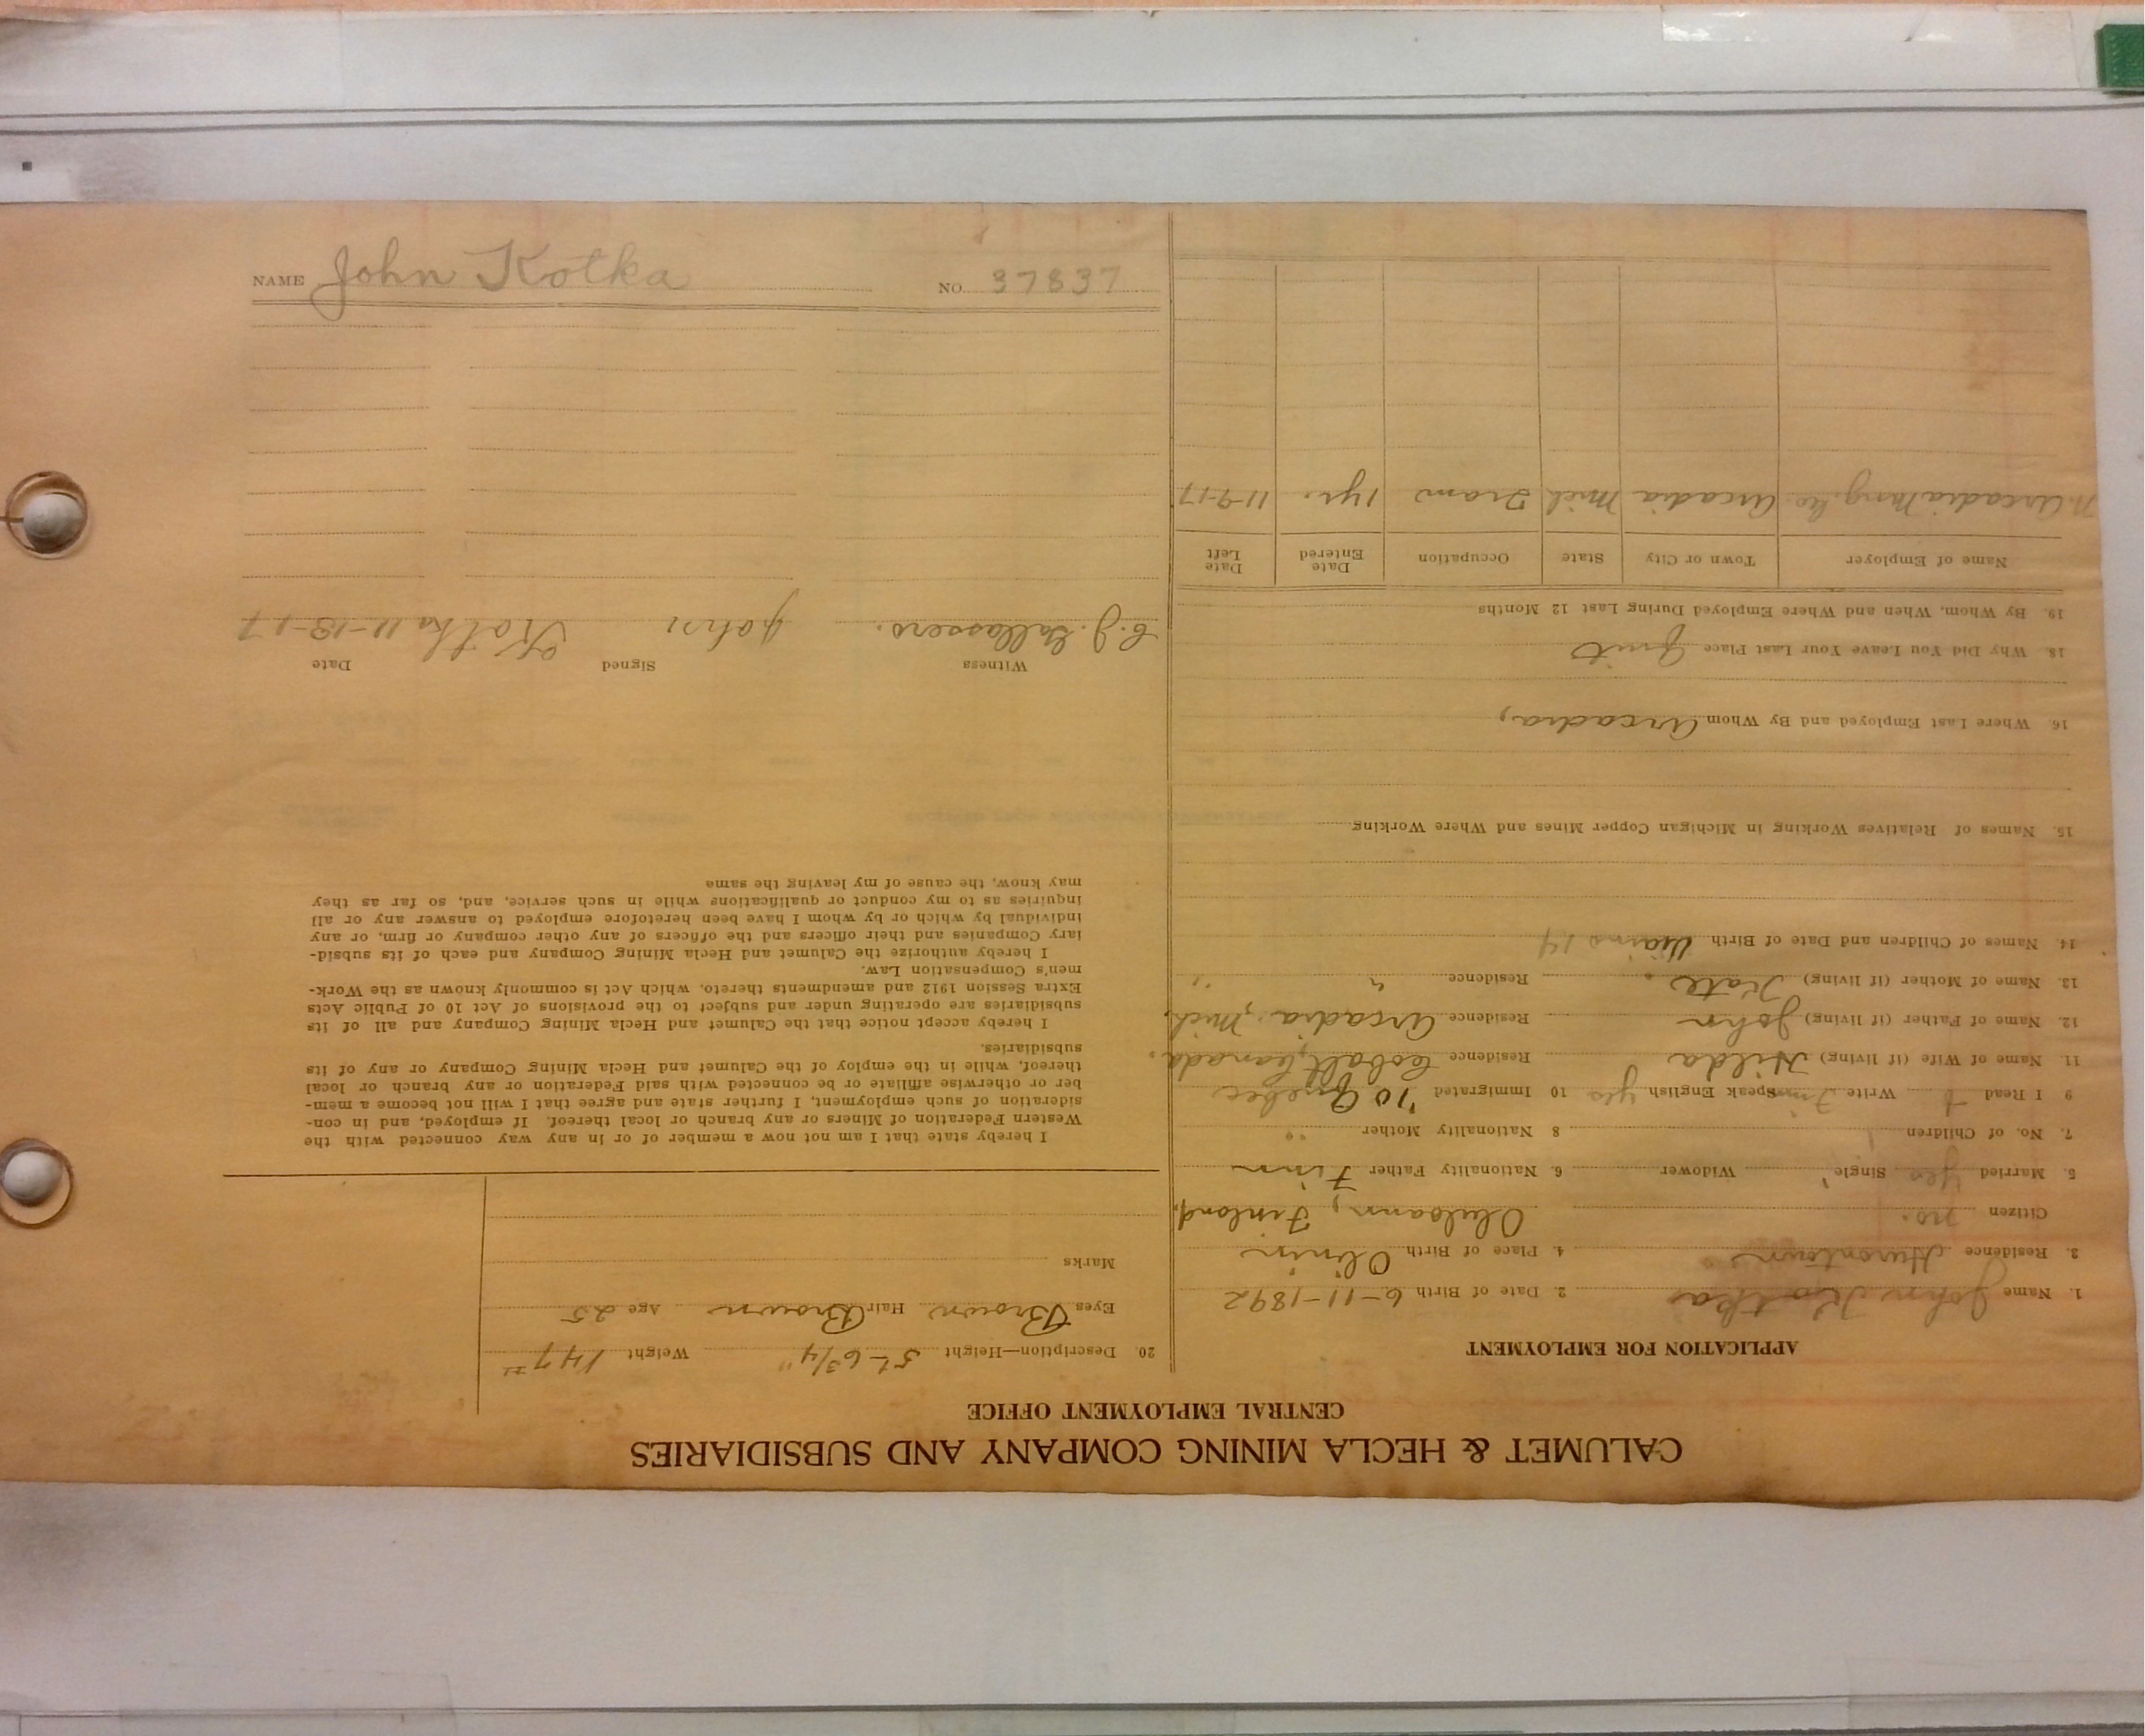 NAME John Kotka NO. 37837
CALUMET & HECLA MINING COMPANY AND SUBSIDIARIES
CENTRAL EMPLOYMENT OFFICE
APPLICATION FOR EMPLOYMENT
1. Name John Kotka 2. Date of Birth 6-11-1892
3. Residence Hurontown 4. Place of Birth
Citizen no. Finland,
5. Married yes Single Widower 6. Nationality Father Finn
7. No. of Children 1 8 Nationality Mother "
9 I Read Write Finn Speak English yes 10 Immigrated '10 Quebec
11. Name of Wife (if living) Hilda Residence Cobalt, Canada.
12. Name of Father (if living) John Residence Arcadia, Mich.
13. Name of Mother (if living) Kate. Residence " "
14. Names of Children and Date of Birth 14
15. Names of Relatives Working in Michigan Copper Mines and Where Working
16. Where Last Employed and By Whom Arcadia,
18. Why Did You Leave Your Last Place Quit
19. By Whom, When and Where Employed During Last 12 Months
Name of Employer Town or City State Occupation Date Entered Date Left
N. Arcadia Mng. Co. Arcadia Mich Tram 1 yr. 11-9-17
20. Description—Height 5'-6 3/4" Weight 147
Eyes Brown Hair Brown Age 25
Marks
I hereby state that I am not now a member of or in any way connected with the
Western Federation of Miners or any branch or local thereof. If employed, and in con-
sideration of such employment, I further state and agree that I will not become a mem-
ber or otherwise affiliate or be connected with said Federation or any branch or local
thereof, while in the employ of the Calumet and Hecla Mining Company or any of its
subsidiaries.
I hereby accept notice that the Calumet and Hecla Mining Company and all of its
subsidiaries are operating under and subject to the provisions of Act 10 of Public Acts
Extra Session 1912 and amendments thereto, which Act is commonly known as the Work-
men's Compensation Law.
I hereby authorize the Calumet and Hecla Mining Company and each of its subsid-
iary Companies and their officers and the officers of any other company or firm, or any
individual by which or by whom I have been heretofore employed to answer any or all
inquiries as to my conduct or qualifications while in such service, and, so far as they
may know, the cause of my leaving the same
Witness Signed Date
John Kotka 11-13-17